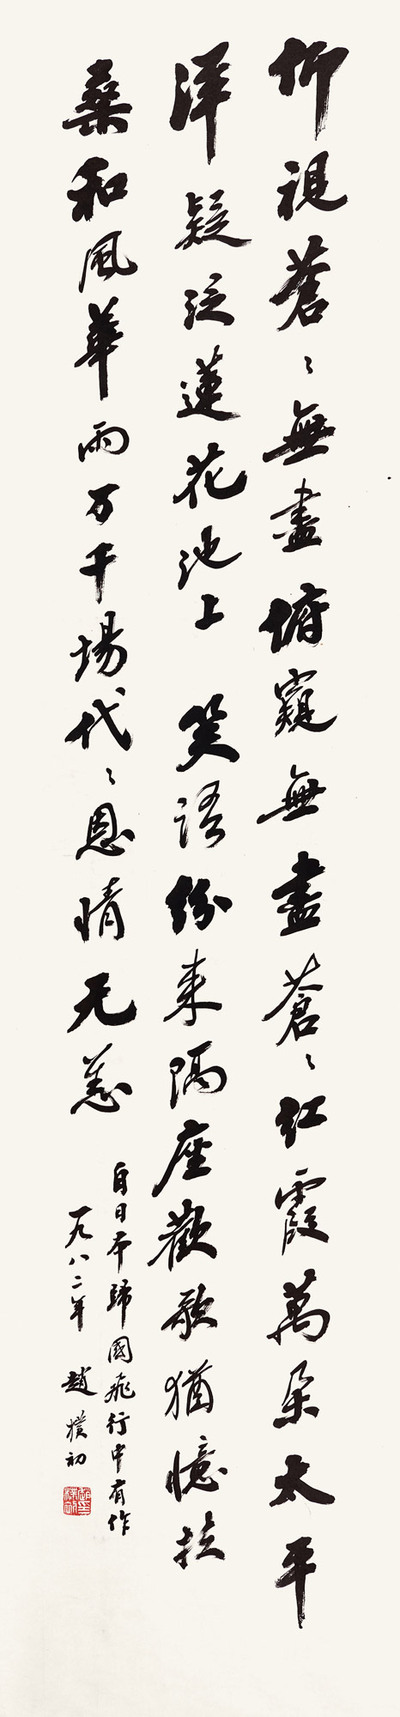 仰視蒼〻無盡俯窺無盡蒼〻紅霞萬朵太平
洋疑泛蓮花池上 笑語紛来隔座歡歌猶憶扶
桑和風華雨万千場代〻恩情无恙
自日本歸國飛行中有作
一九八二年 趙樸初